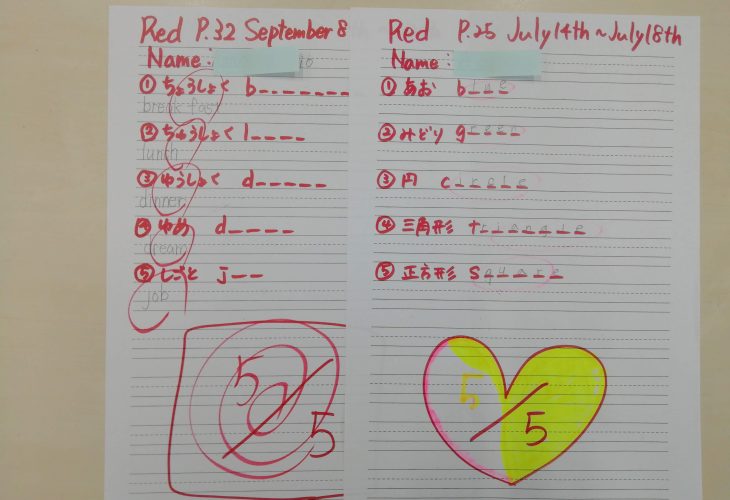 Red P.32 September 8
Name:
① ちょうしょく b_ _ _ _ _ _ _ _
break fast
② ちゅうしょく l_ _ _ _
lunch
③ ゆうしょく d_ _ _ _ _
dinner
④ ゆめ d_ _ _ _
dream
⑤ しごと j_ _
job
5/5
Red P.25 July14th~July18th
Name:
① あお blue
② みどり green
③ 円 circle
④ 三角形 triangle
⑤ 正方形 square
5/5